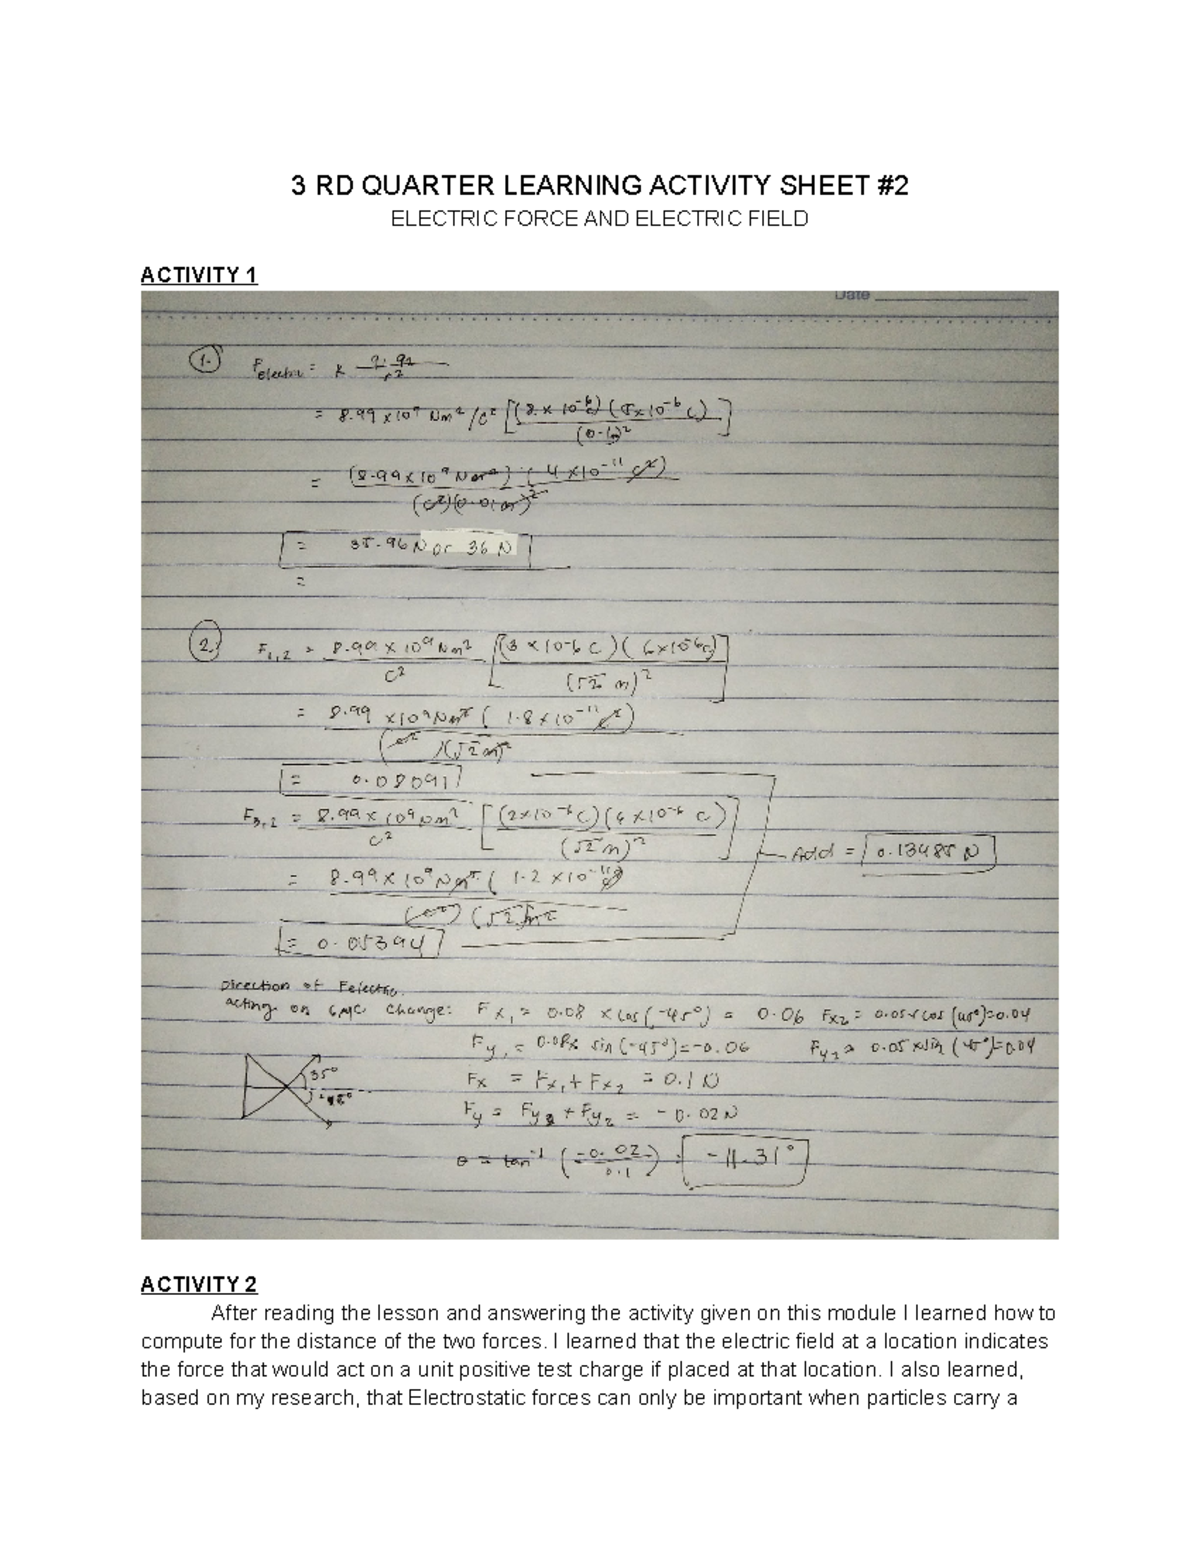 3 RD QUARTER LEARNING ACTIVITY SHEET #2
ELECTRIC FORCE AND ELECTRIC FIELD
ACTIVITY 1
Date
1. Felectric = k q1 q2 / r²
= 8.99 x 10⁹ Nm²/C² [(8 x 10⁻⁶ C) (5 x 10⁻⁶ C) / (0.1)²]
= (8.99 x 10⁹ Nm²) (4 x 10⁻¹¹ C²) / (C²)(0.01m)²
= 35.96 N or 36 N
=
2. F1,2 = 8.99 x 10⁹ Nm² / C² [(3 x 10-6 C) (6 x 10⁻⁶ C) / (√2 m)²]
= 8.99 x 10⁹ Nm² (1.8 x 10⁻¹¹ C²) / (C²)(√2 m)²
= 0.08091
F3,2 = 8.99 x 10⁹ Nm² / C² [(2 x 10⁻⁶ C) (6 x 10⁻⁶ C) / (√2 m)²]
Add = 0.13485 N
= 8.99 x 10⁹ Nm² (1.2 x 10⁻¹¹ C²) / (C²) (√2)m²
= 0.05394
Direction of Felectric
acting on 6MC change: Fx1 = 0.08 x cos(-45°) = 0.06 Fx2 = 0.05 x cos (45°) = 0.04
Fy1 = 0.08 x sin (-45°) = -0.06 Fy2 = 0.05 x sin (45°) = 0.04
35° Fx = Fx1 + Fx2 = 0.1 N
-45° Fy = Fy1 + Fy2 = -0.02 N
θ = tan⁻¹ (-0.02 / 0.1) = -11.31°
ACTIVITY 2
After reading the lesson and answering the activity given on this module I learned how to
compute for the distance of the two forces. I learned that the electric field at a location indicates
the force that would act on a unit positive test charge if placed at that location. I also learned,
based on my research, that Electrostatic forces can only be important when particles carry a